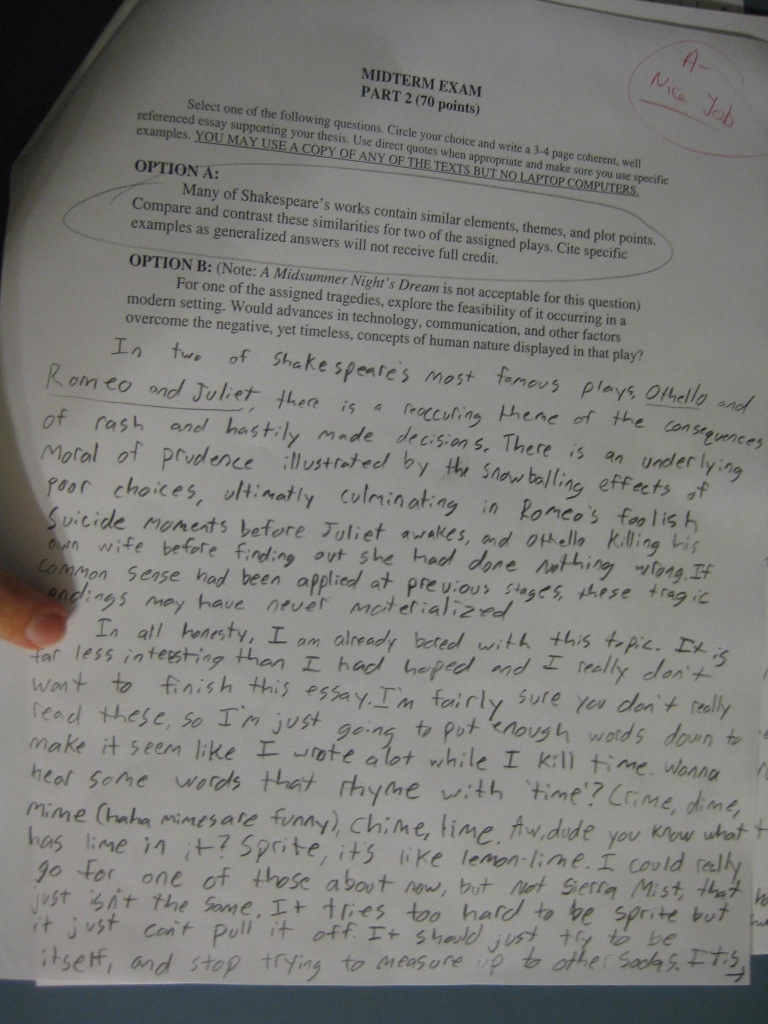 A-
Nice Job
MIDTERM EXAM
PART 2 (70 points)
Select one of the following questions. Circle your choice and write a 3-4 page coherent, well
referenced essay supporting your thesis. Use direct quotes when appropriate and make sure you use specific
examples. YOU MAY USE A COPY OF ANY OF THE TEXTS BUT NO LAPTOP COMPUTERS.
OPTION A:
Many of Shakespeare's works contain similar elements, themes, and plot points.
Compare and contrast these similarities for two of the assigned plays. Cite specific
examples as generalized answers will not receive full credit.
OPTION B: (Note: A Midsummer Night's Dream is not acceptable for this question)
For one of the assigned tragedies, explore the feasibility of it occurring in a
modern setting. Would advances in technology, communication, and other factors
overcome the negative, yet timeless, concepts of human nature displayed in that play?
In two of Shakespeare's most famous plays, Othello and
Romeo and Juliet, there is a reoccuring theme of the consequences
of rash and hastily made decisions. There is an underlying
moral of prudence illustrated by the snowballing effects of
poor choices, ultimatly culminating in Romeo's foolish
suicide moments before Juliet awakes, and Othello killing his
own wife before finding out she had done nothing wrong. If
common sense had been applied at previous stages, these tragic
endings may have never materialized
In all honesty, I am already bored with this topic. It is
far less intersting than I had hoped and I really don't
want to finish this essay. I'm fairly sure you don't really
read these, so I'm just going to put enough words down to
make it seem like I wrote alot while I kill time. Wanna
hear some words that rhyme with 'time'? Crime, dime,
mime (haha mimes are funny), chime, lime. Aw, dude you know what
has lime in it? Sprite, it's like lemon-lime. I could really
go for one of those about now, but not Sierra Mist, that
just isn't the same. It tries too hard to be sprite but
it just can't pull it off. It should just try to be
itself, and stop trying to measure up to other sodas. It is